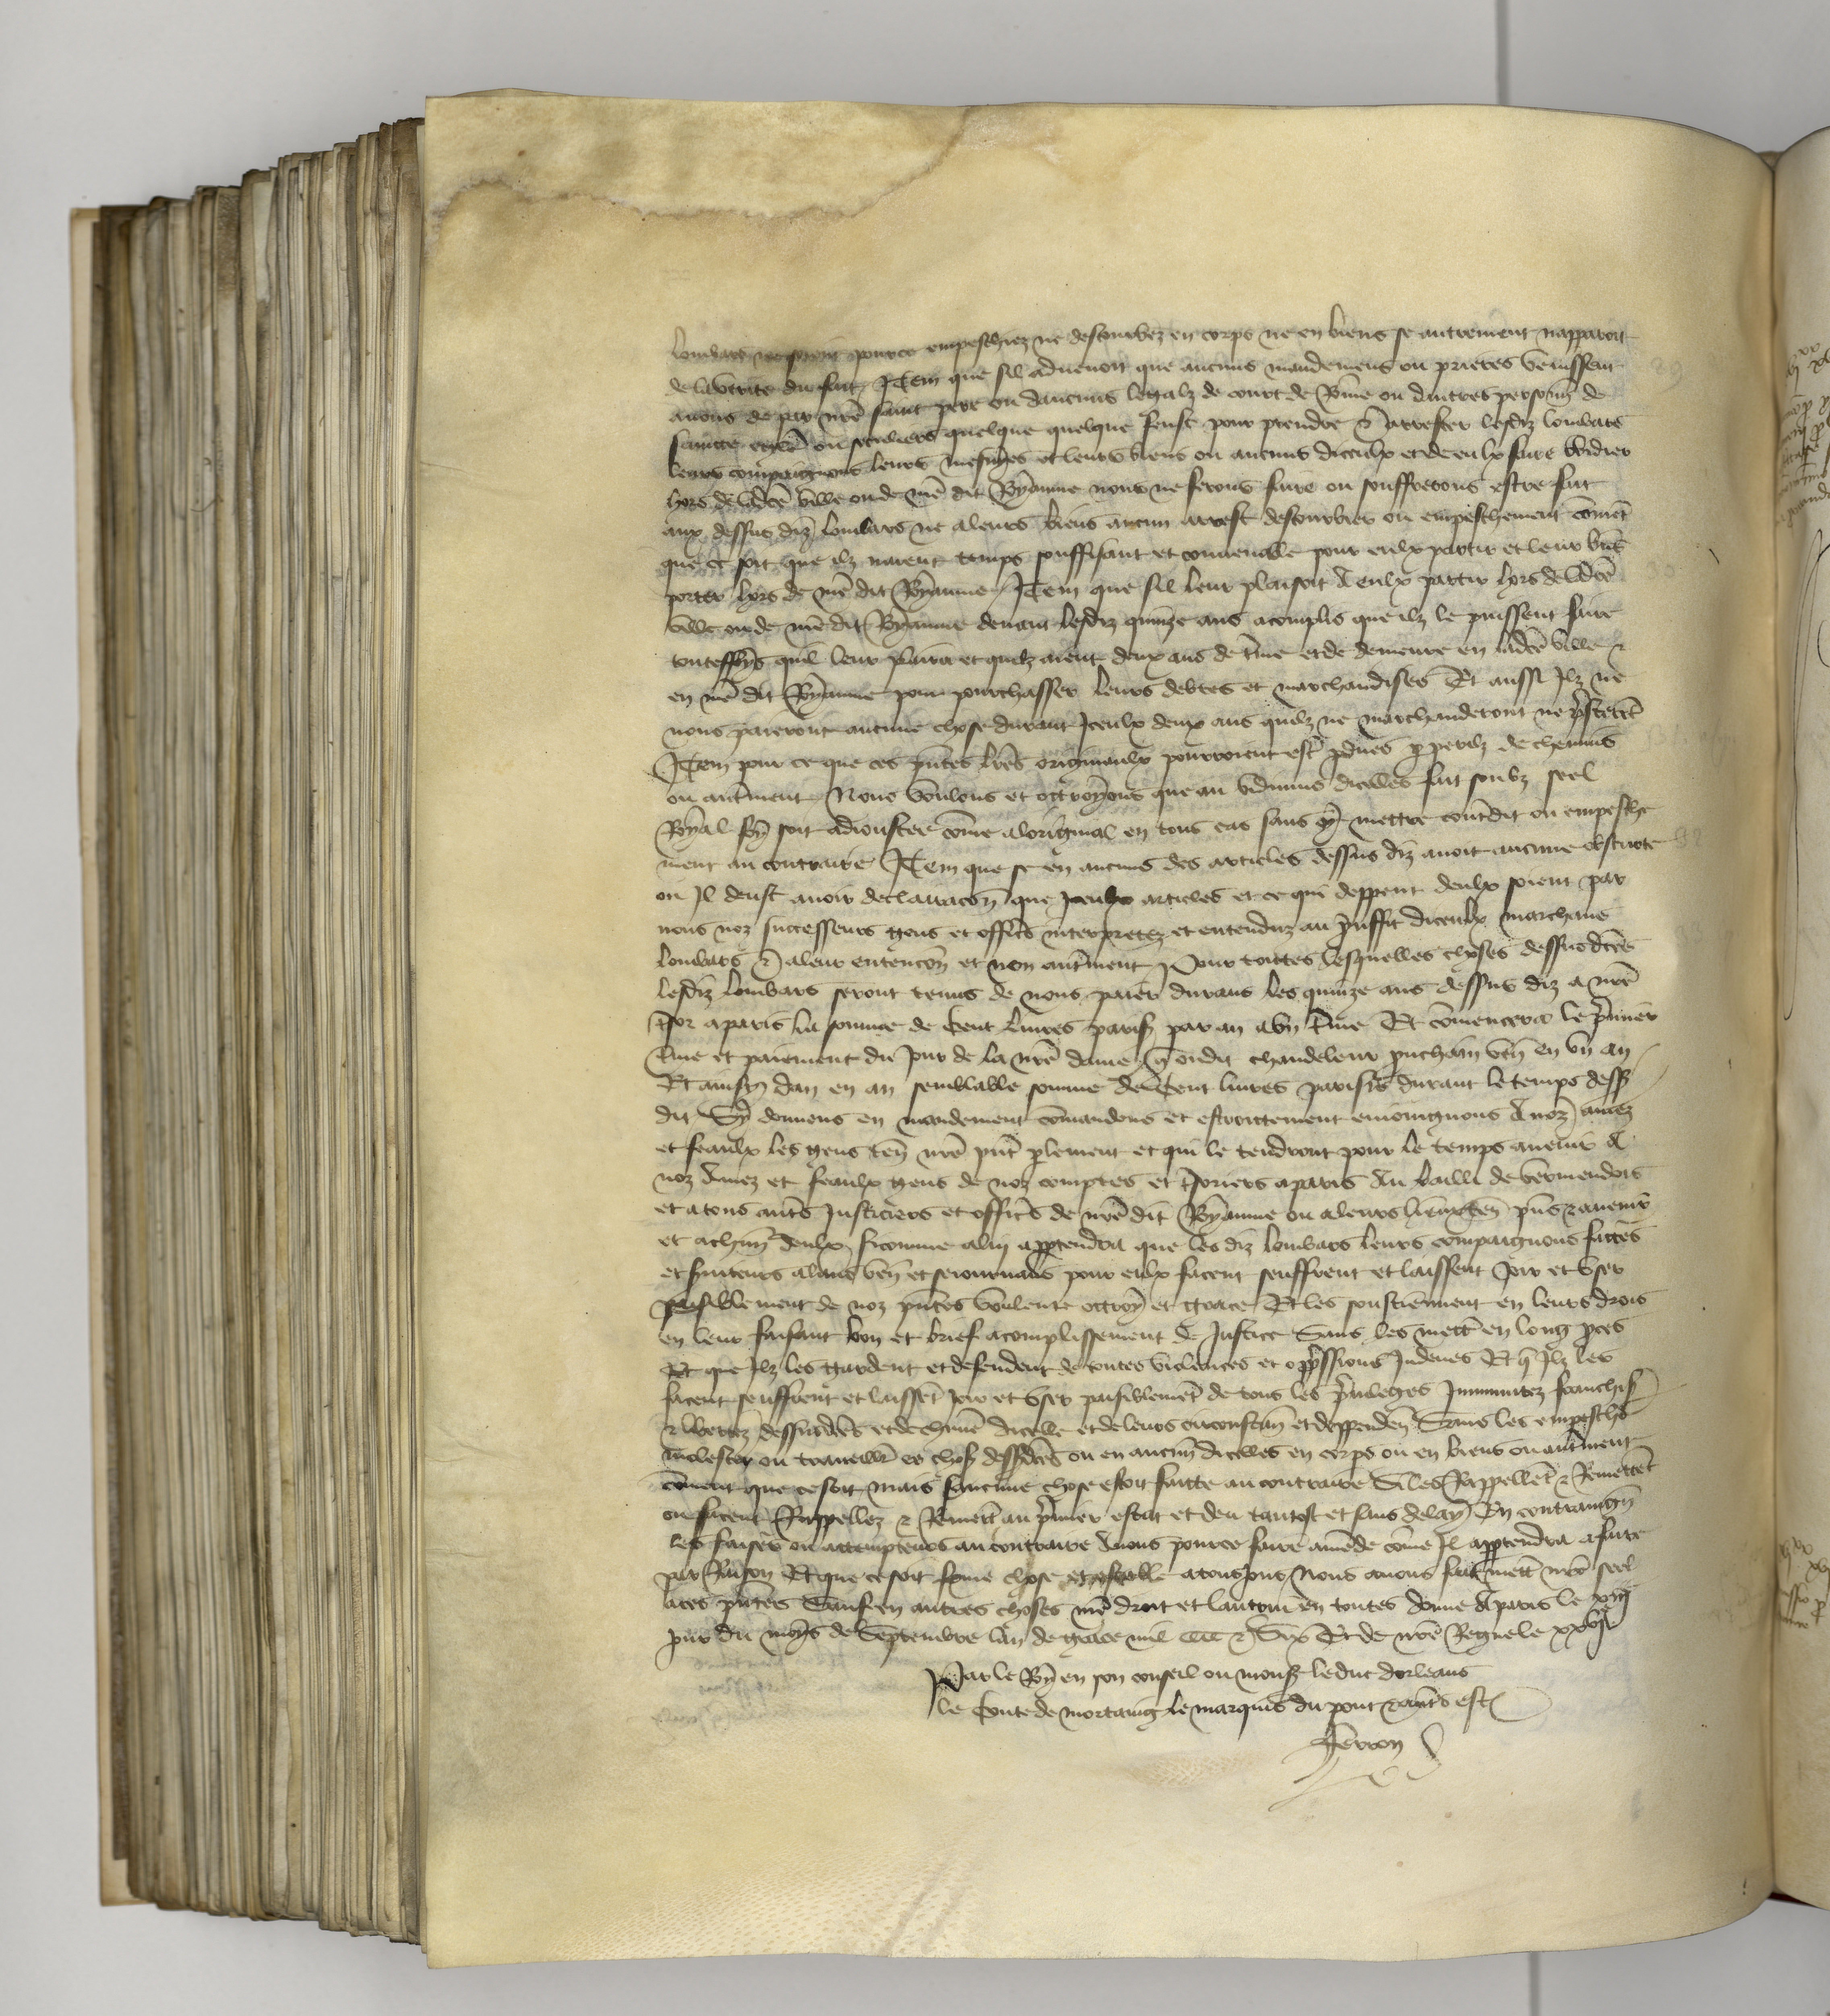 lombars ne soient pour ce empeschiez ne destourbez en corps ne en biens se autrement napparoit
de la verite du fait Item que sil aduenoit que aucuns mandemens ou prieres venissent
a nous de par nrē saint pere ou daucuns legalz de court de Rōme ou dautres personnes de
saincte eglē ou seculiers quelque quelque feust pour prendre & arrester lesdiz lombars
leurs compaignons leurs mesnies et leurs biens ou aucuns diceulx et de eulx faire vuidier
hors de ladcē ville ou de nrē dit Royaume nous ne ferons faire ou souffrerons estre fait
aux dessus diz lombars ne a leurs biens aucun arrest destourbier ou empeschement comēt
que ce soit que ilz naient temps souffisant et conuenable pour eulx partir et leur biēs
porter hors de nrē dit Royaume Item que sil leur plaisoit A eulx partir hors de ladcē
ville ou de nrē dit Royaume deuant lesdiz quinze ans acomplis que ilz le puissent faire
touteffoys quil leur plaira et quilz aient deux ans de tme et de demeure en ladcē ville &
en nrē dit Royaume pour pourchasser leurs debtes et marchandises Et aussi Ilz ne
nous paieront aucune chose durant Iceulx deux ans quilz ne marchanderont ne prsteront
Item pour ce que ces pntes lrēs originaulx pourroient estr pdues p perilz de chemins
ou autment Nous voulons et octroyons que au vidimus dicelles fait soubz seel
Royal foy soit adioustee cōme a loriginal en tous cas sans y mettre contdit ou empesche
ment au contraire Item que se en aucuns des articles dessus diz auoit aucune obscurte
ou Il deust auoir declaracōn que Iceulx articles et ce qui deppent deulx soient par
nous noz successeurs gens et officrs interpretez et entenduz au prouffit diceulx marchans
lombars & a leur entencōn et non autment Pour toutes lesquelles choses dessusdctēs
lesdiz lombars seront tenus de nous paier durans les quinze ans dessus diz a nrē
tsor a paris la somme de Cent liures parisis par an a vn tme Et cōmencera le pmier
tme et paiement du Iour de la nrē dame q on dit chandeleur prochain ven en vn an
Et ainsi dan en an semblable somme de Cent liures parisis durant le temps dess
dit Sy donnons en mandement cōmandons et estroictement enioingnons A noz amez
et feaulx les gens ten nrē pnt plement et qui le tendront pour le temps auenir A
noz Amez et feaulx gens de noz comptes et tsoriers a paris Au bailli de vermendois
et a tous autrs Iusticiers et officrs de nrē dit Royaume ou a leurs lieuxten pns & auenir
et a chun deulx sicomme a luy appartendra que les diz lombars leurs compaignons facteurs
et seruiteurs alans ven et seiournans pour eulx facent seuffrent et laissent Ioir et vser
paisiblement de noz pntes voulente octroy et grace Et les soustiennent en leurs drois
en leur faisant bon et brief acomplissement de Iustice Sans les mettr en long pces
Et que Ilz les gardent et defendent de toutes violences et oppressions Indeues Et q Ilz les
facent seuffrent et laissent Ioir et vser paisiblemēt de tous les priuileges Immunitez franchis
& libertez dessusdictes et de chūne dicelle et de leurs circonstan et deppenden Sans les empeschr
molester ou trauellr es choses dessusdctēs ou en aucune dicelles en corps ou en biens ou autment
cōment que ce soit mais saucune chose estoit faitte au contraire Si les Rappellēt & Remettēt
ou facent Rappeller & Remettr au pmier estat et deu tantost et sans delay En contraingn
les faiseurs ou attempteurs au contraire A nous pour ce faire amēde cōme Il appartendra a faire
par Raison Et que ce soit ferme chose et estable a tousiours Nous auons fait mettr nrē seel
a ces pntes Sauf en autres choses nrē droit et lautrui en toutes donne A paris le xiij
Iour du moys de Septembre lan de grace mil cccc & Six Et de nrē Regne le xxvije
Par le Roy en son conseil ou mons le duc dorleans
le Conte de mortaing le marquis du pont & autrs estoient
ferron